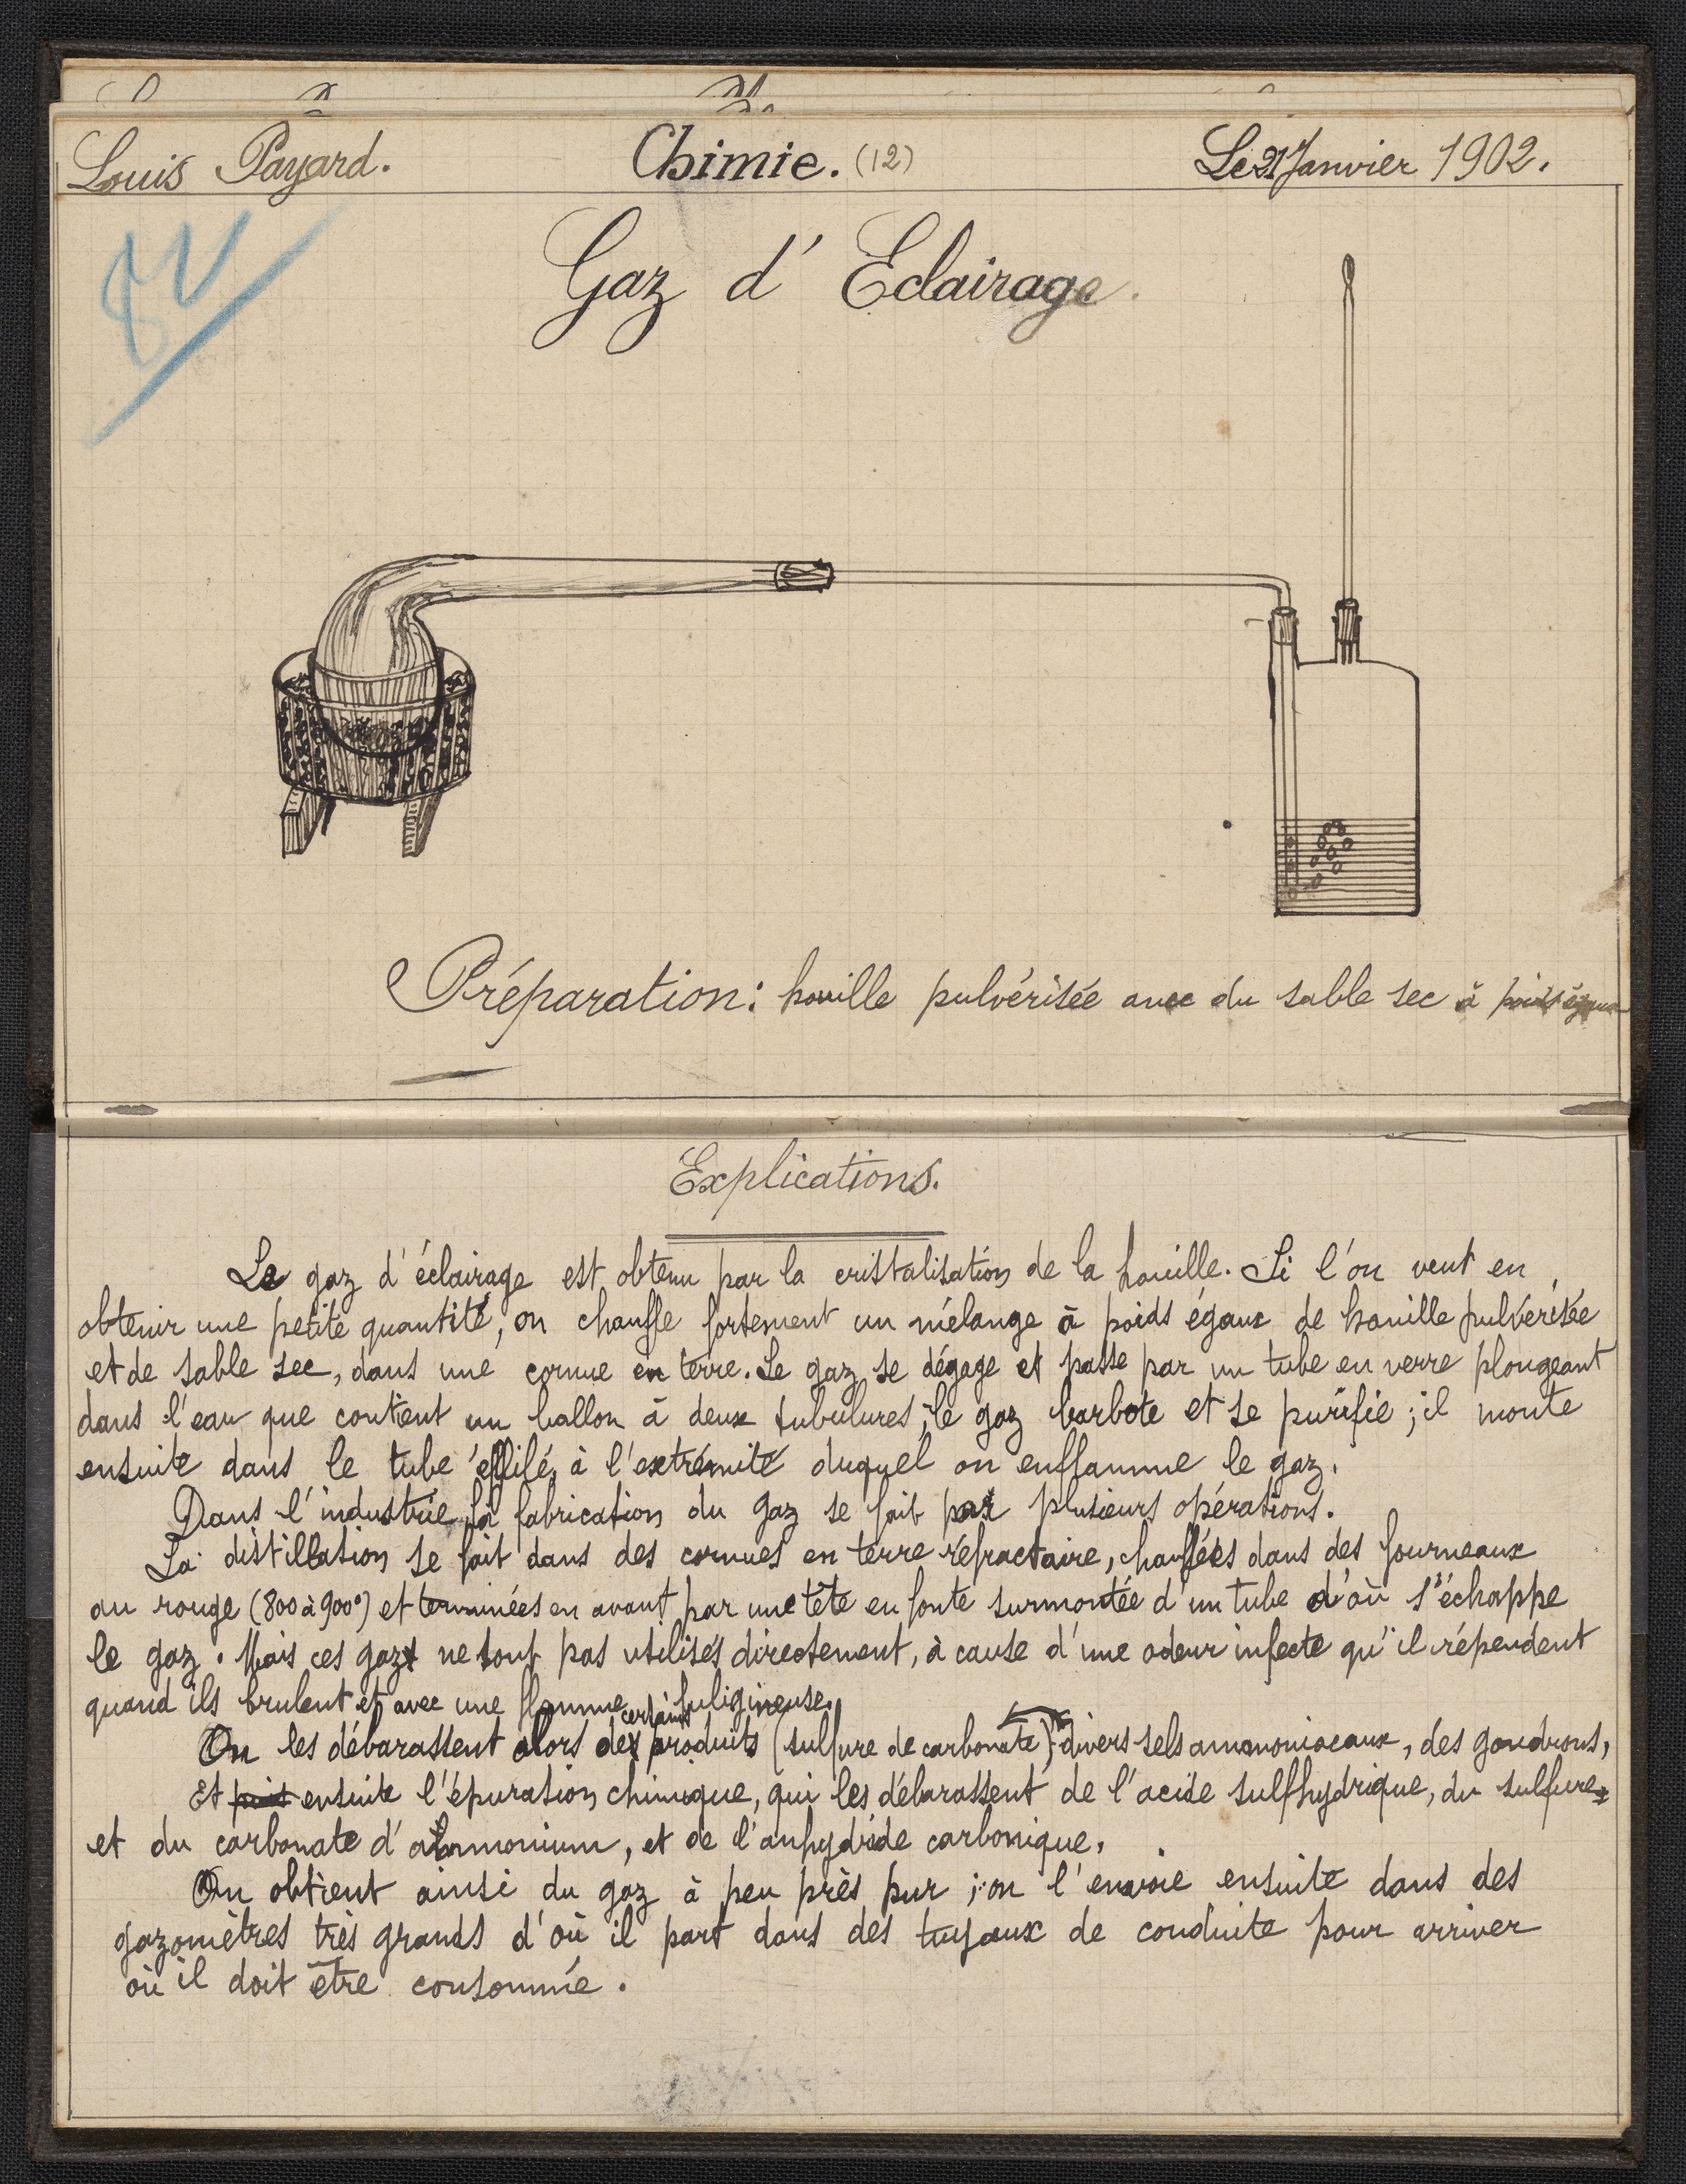 Louis Payard. Chimie. (12) Le 21 Janvier 1902.
Gaz d' Eclairage.
Préparation : houille pulvérisée avec du sable sec à poids égaux
Explications.
Le gaz d'éclairage est obtenu par la cristalisation de la houille. Si l'on veut en
obtenir une petite quantité, on chauffe fortement un mélange à poids égaux de houille pulvérisée
et de sable sec, dans une cornue en terre. Le gaz se dégage et passe par un tube en verre plongeant
dans l'eau que contient un ballon à deux tubulures ; le gaz barbote et se purifie ; il monte
ensuite dans le tube éffilé, à l'extrémité duquel on enflamme le gaz.
Dans l'industrie, la fabrication du gaz se fait par plusieurs opérations.
La distillation se fait dans des cornues en terre réfractaire, chauffées dans des fourneaux
au rouge (800 à 900°) et terminées en avant par une tête en fonte surmontée d'un tube d'où s'échappe
le gaz. Mais ces gaz ne sont pas utilisés directement, à cause d'une odeur infecte qu'il répendent
quand ils brulent et avec une flamme fuligineuse.
On les débarassent alors des certains produits (sulfure de carbonate) divers sels ammoniacaux, des goudrons,
Et puis ensuite l'épuration chimique, qui les débarassent de l'acide sulfhydrique, du sulfure
et du carbonate d'ammonium, et de l'anhydride carbonique.
On obtient ainsi du gaz à peu près pur ; on l'envoie ensuite dans des
gazomètres très grands d'où il part dans des tuyaux de conduite pour arriver
où il doit être consommé.